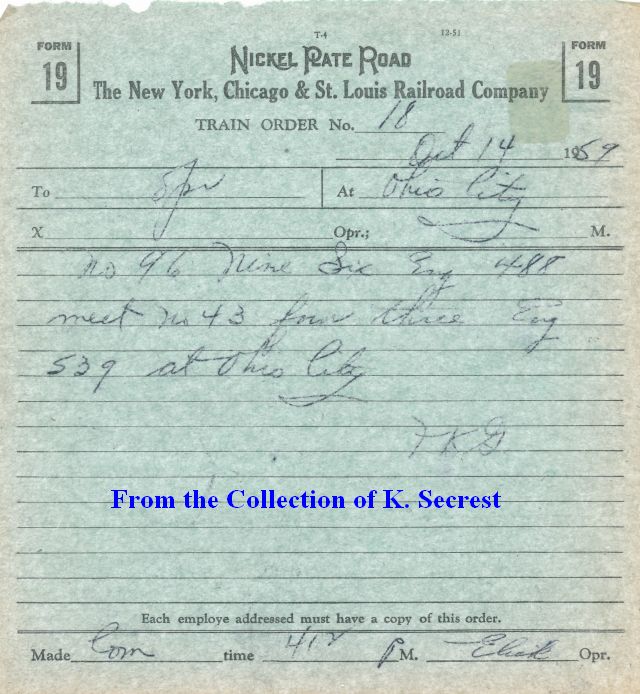 T-4 12-51
FORM 19 NICKEL PLATE ROAD FORM 19
The New York, Chicago & St. Louis Railroad Company
TRAIN ORDER No. 18
Oct 14 1959
To Opr At Ohio City
X Opr.; M.
No 96 Nine Six Eng 488
meet No 43 four three Eng
539 at Ohio City
From the Collection of K. Secrest
Each employe addressed must have a copy of this order.
Made Com time 412 P M. Opr.